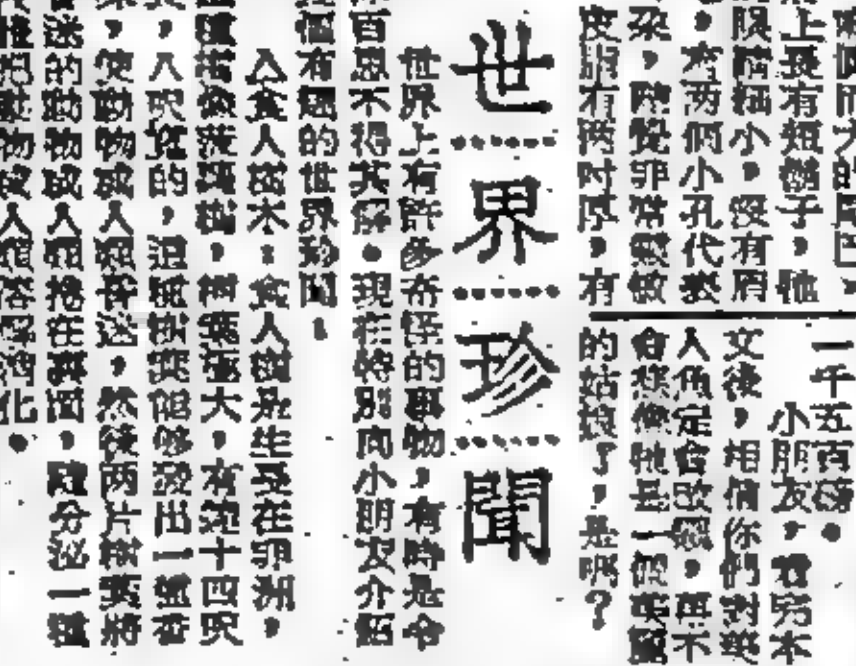 的尾巴,
上長有短鬍子,牠
眼睛細小,沒有眉
,有两個小孔代表
朵,聽覺非常靈敏
皮脂有两吋厚,有
一千五百磅。
小朋友,看完本
文後,相信你們對美
人魚定會改觀,再不
會想像牠是一個美麗
的姑娘了,是嗎?
世界珍聞
世界上有許多奇怪的事物,有時是令
百思不得其解。現在特別向小朋友介紹
個有趣的世界珍聞。
食人樹木:食人樹是生長在非洲,
種樹像菠蘿樹,樹葉極大,有達十四呎
,人的,這種樹葉能够發出一種香
,使動物或人類昏迷,然後两片樹葉將
迷的動物或人類捲在裏面,隨分泌一種
把動物或人類溶解消化。